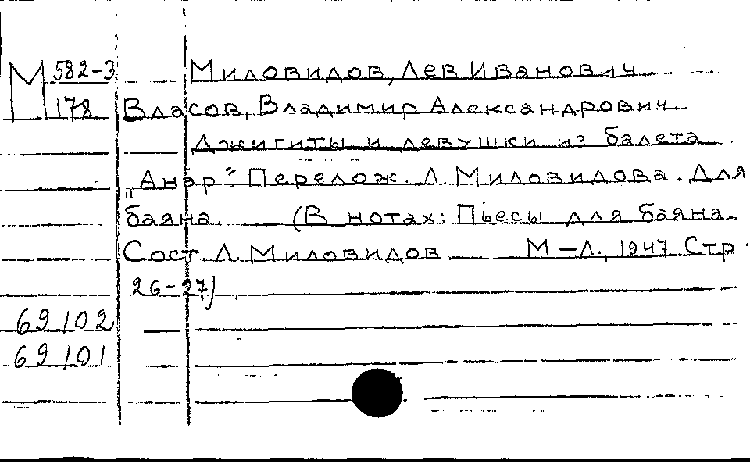 М 582-3 Миловидов, Лев Иванович
178 Власов, Владимир Александрович
Джигиты и девушки из балета
„Анар" Перелож. Л. Миловидова. Для
баяна. (В нотах: Пьесы для баяна.
Сост. Л. Миловидов М-Л, 1947 Стр.
26-27)
69102
69101